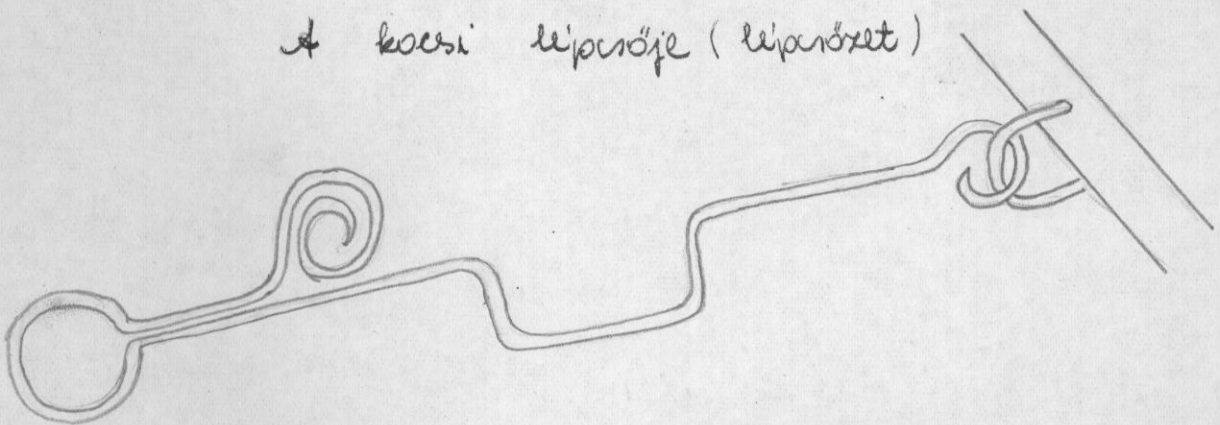 A kocsi lépcsője (lépcsőzet)